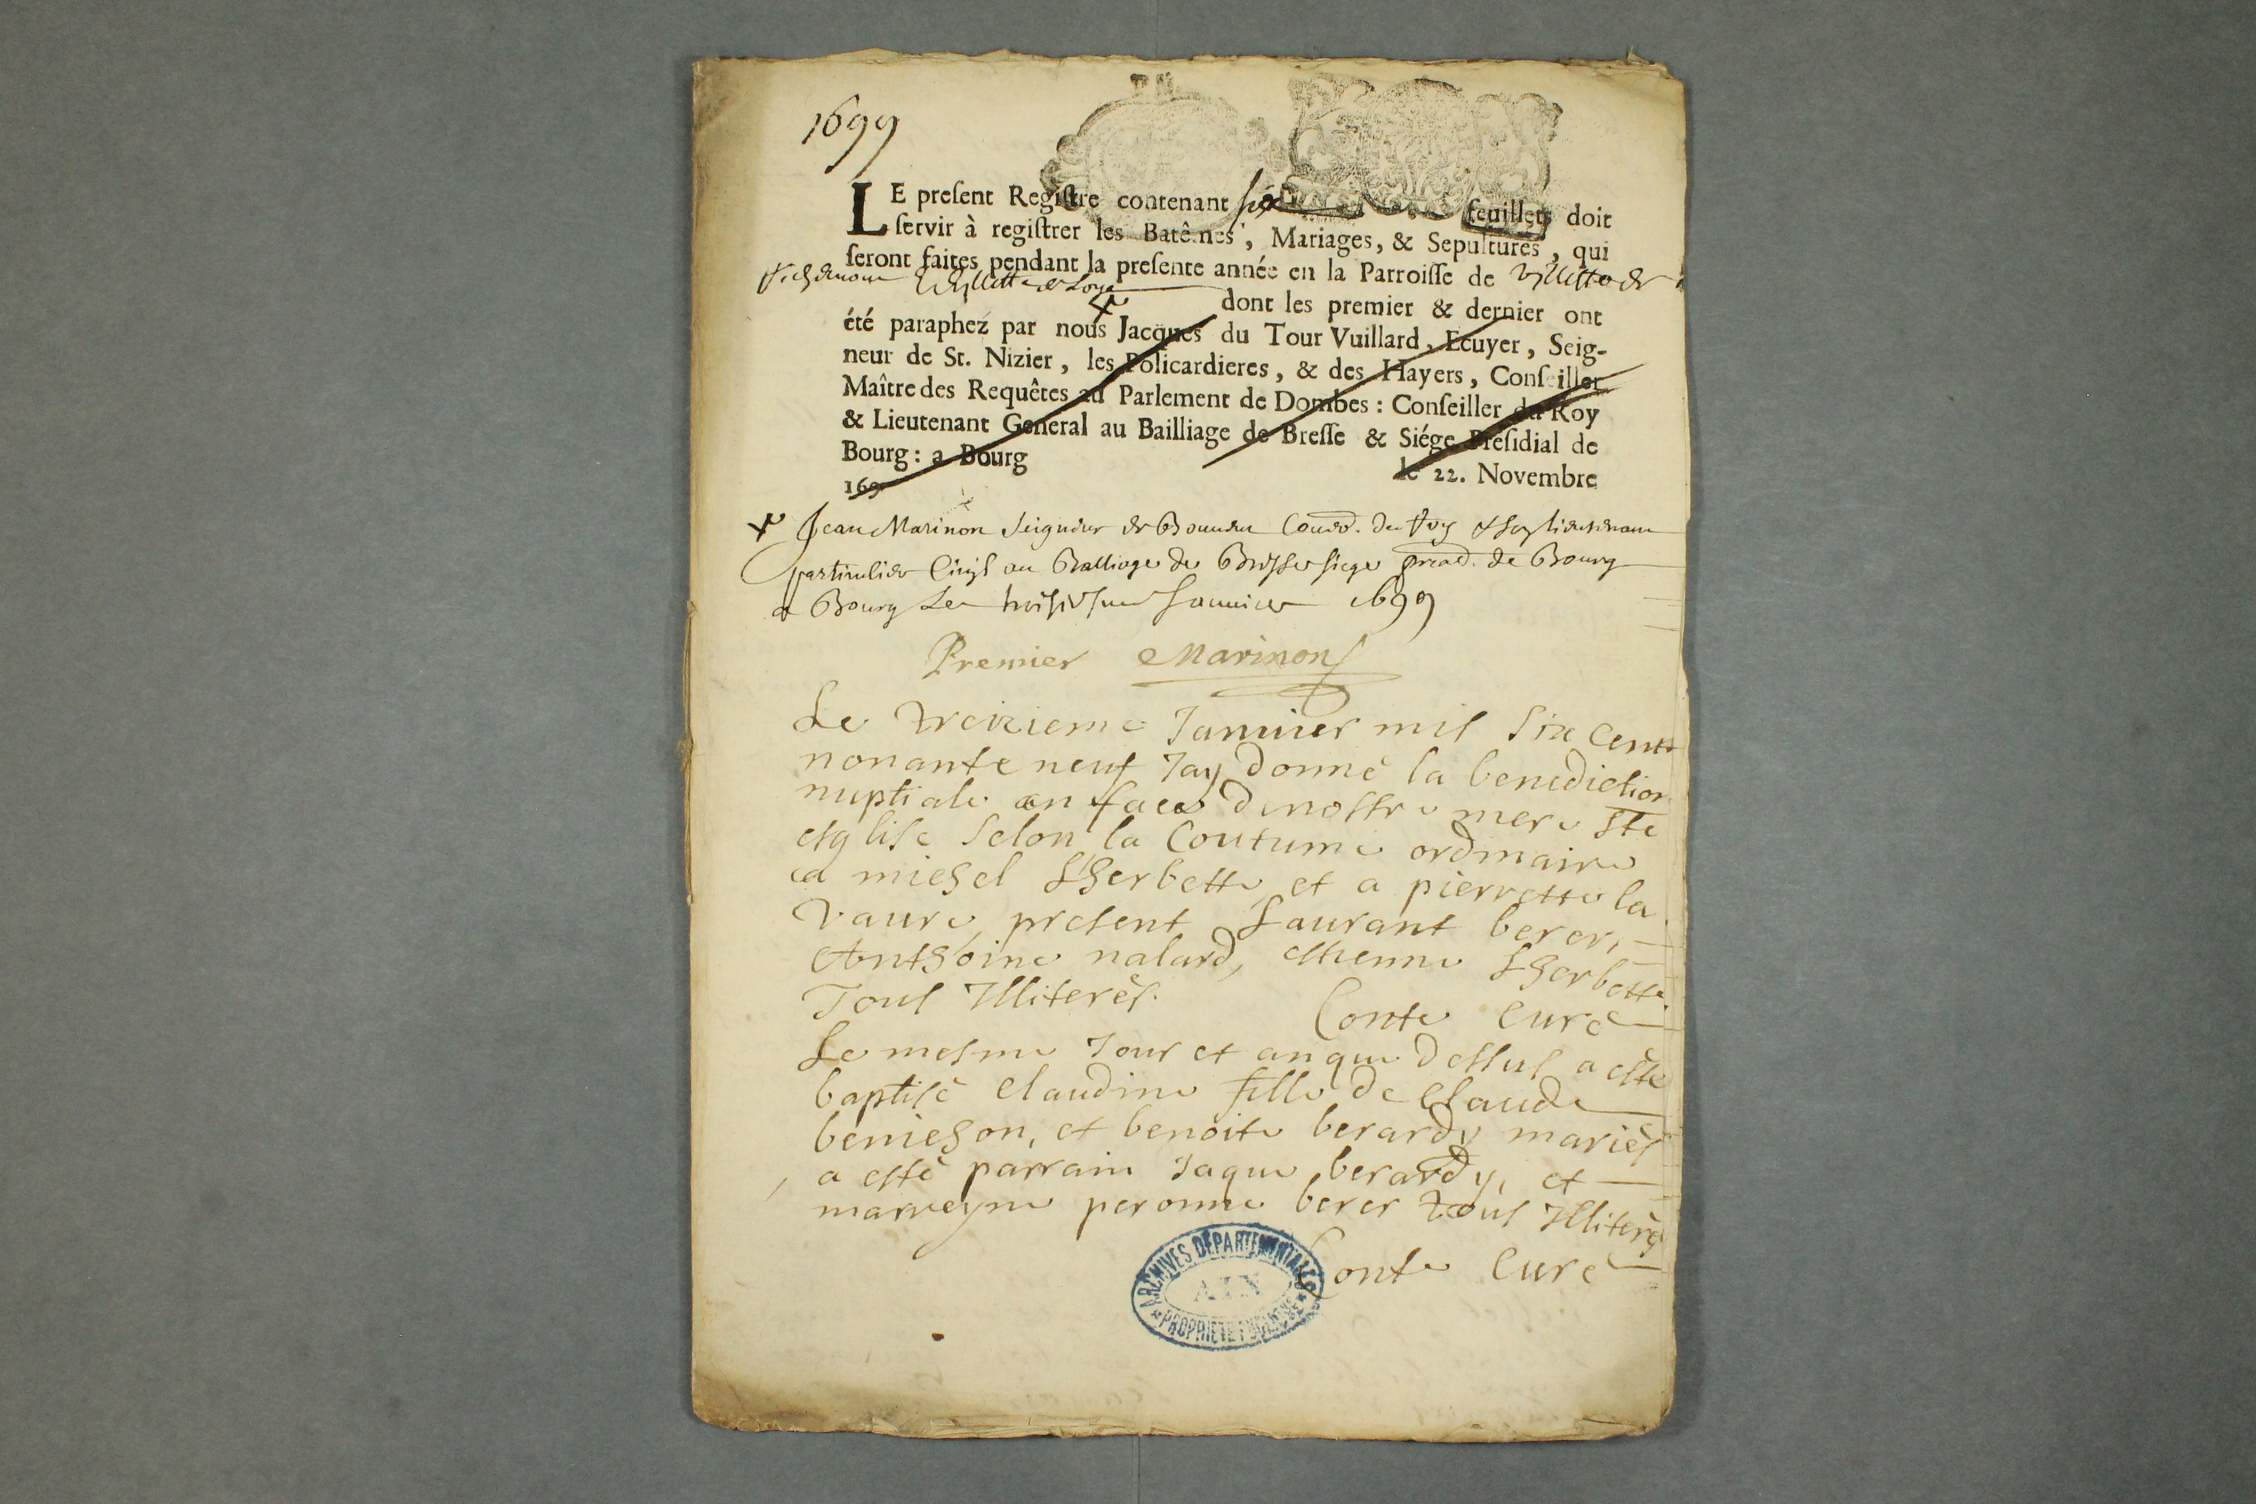 1699
LE preſent Regiſtre contenant six feuillets doit
ſervir à regiſtrer les Batêmes, Mariages, & Sepultures, qui
ſeront faites pendant la preſente année en la Parroiſſe de Villette de
Richemont Villette de Loye dont les premier & dernier ont
été paraphez par nous Jacques du Tour Vuillard, Ecuyer, Seig-
neur de St. Nizier, les Policardieres, & des Hayers, Conſeiller
Maître des Requêtes au Parlement de Dombes: Conſeiller du Roy
& Lieutenant General au Bailliage de Breſſe & Siége Préſidial de
Bourg: a Bourg le 22. Novembre
169
Jean Marinon Seigneur de du Roy lieutenant
particulier Civil au Balliage de Bresse siege de Bourg
a Bourg Le troisiesme Januier 1699
Premier Marinon
Le treizieme Januier mil six cents
nonante neuf Jay donné la benediction
nuptiale en face de nostre mere ste
esglise selon la Coutume ordinaire
a michel Lherbette et a pierrette la
vaure, present Laurant berer,
Anthoine nalard, estienne Lherbette
Tous Illiterés. Conte Curé
Le mesme Jour et an que dessus a esté
baptisé Claudine fille de Claude
benichon, et benoite berardy mariés
a esté parrain Jaque berardy, et
marreyne peronne berer tous Illiterés
Conte Curé
ARCHIVES DÉPARTEMENTALES
AIN
PROPRIÉTÉ PUBLIQUE